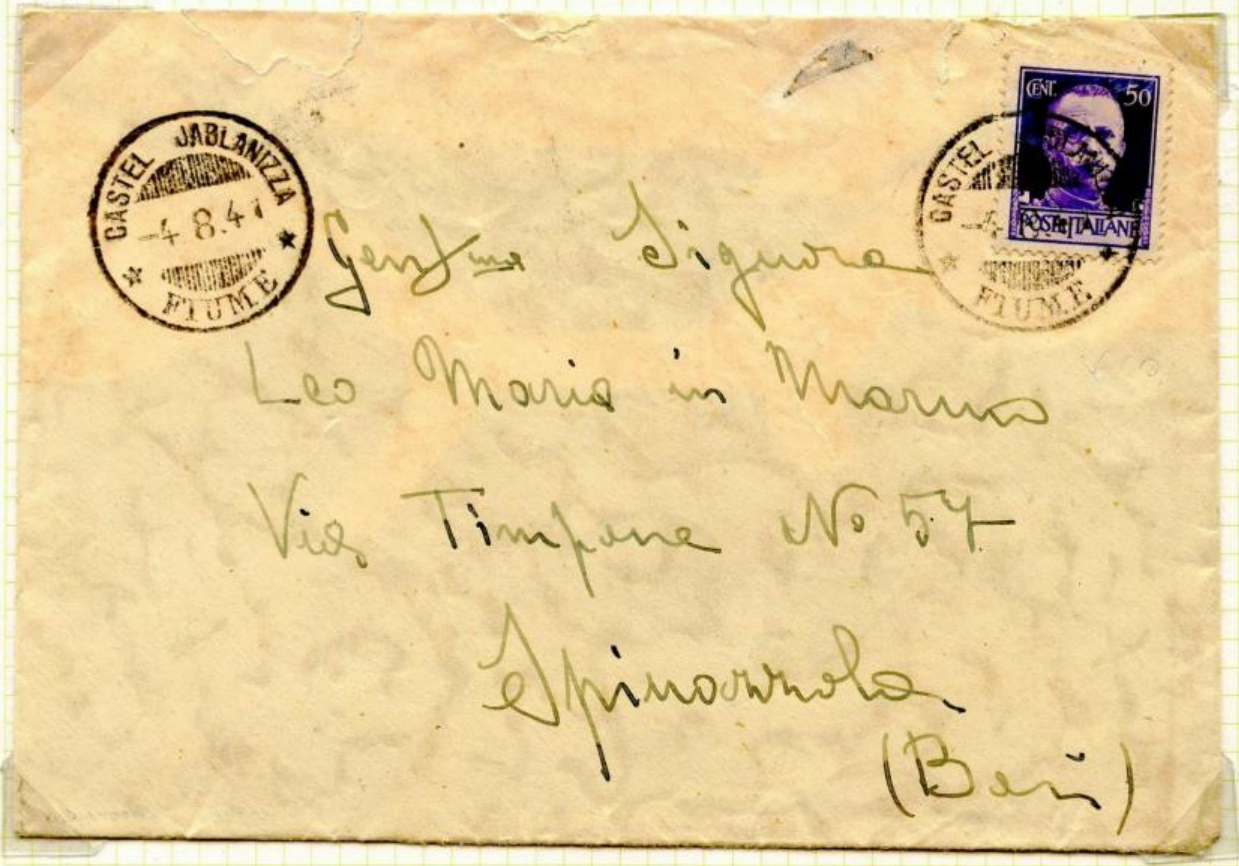 CASTEL JABLANIZZA
-4.8.41
FIUME
CENT. 50
POSTE ITALIANE
CASTEL
-4
FIUME
Gent.ma Signora
Leo Maria in Marino
Via Timpone No 57
Spinazzola
(Bari)